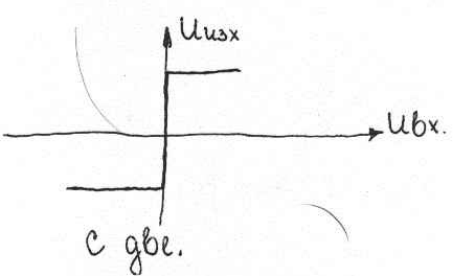 Uизх
Uвх.
С две.